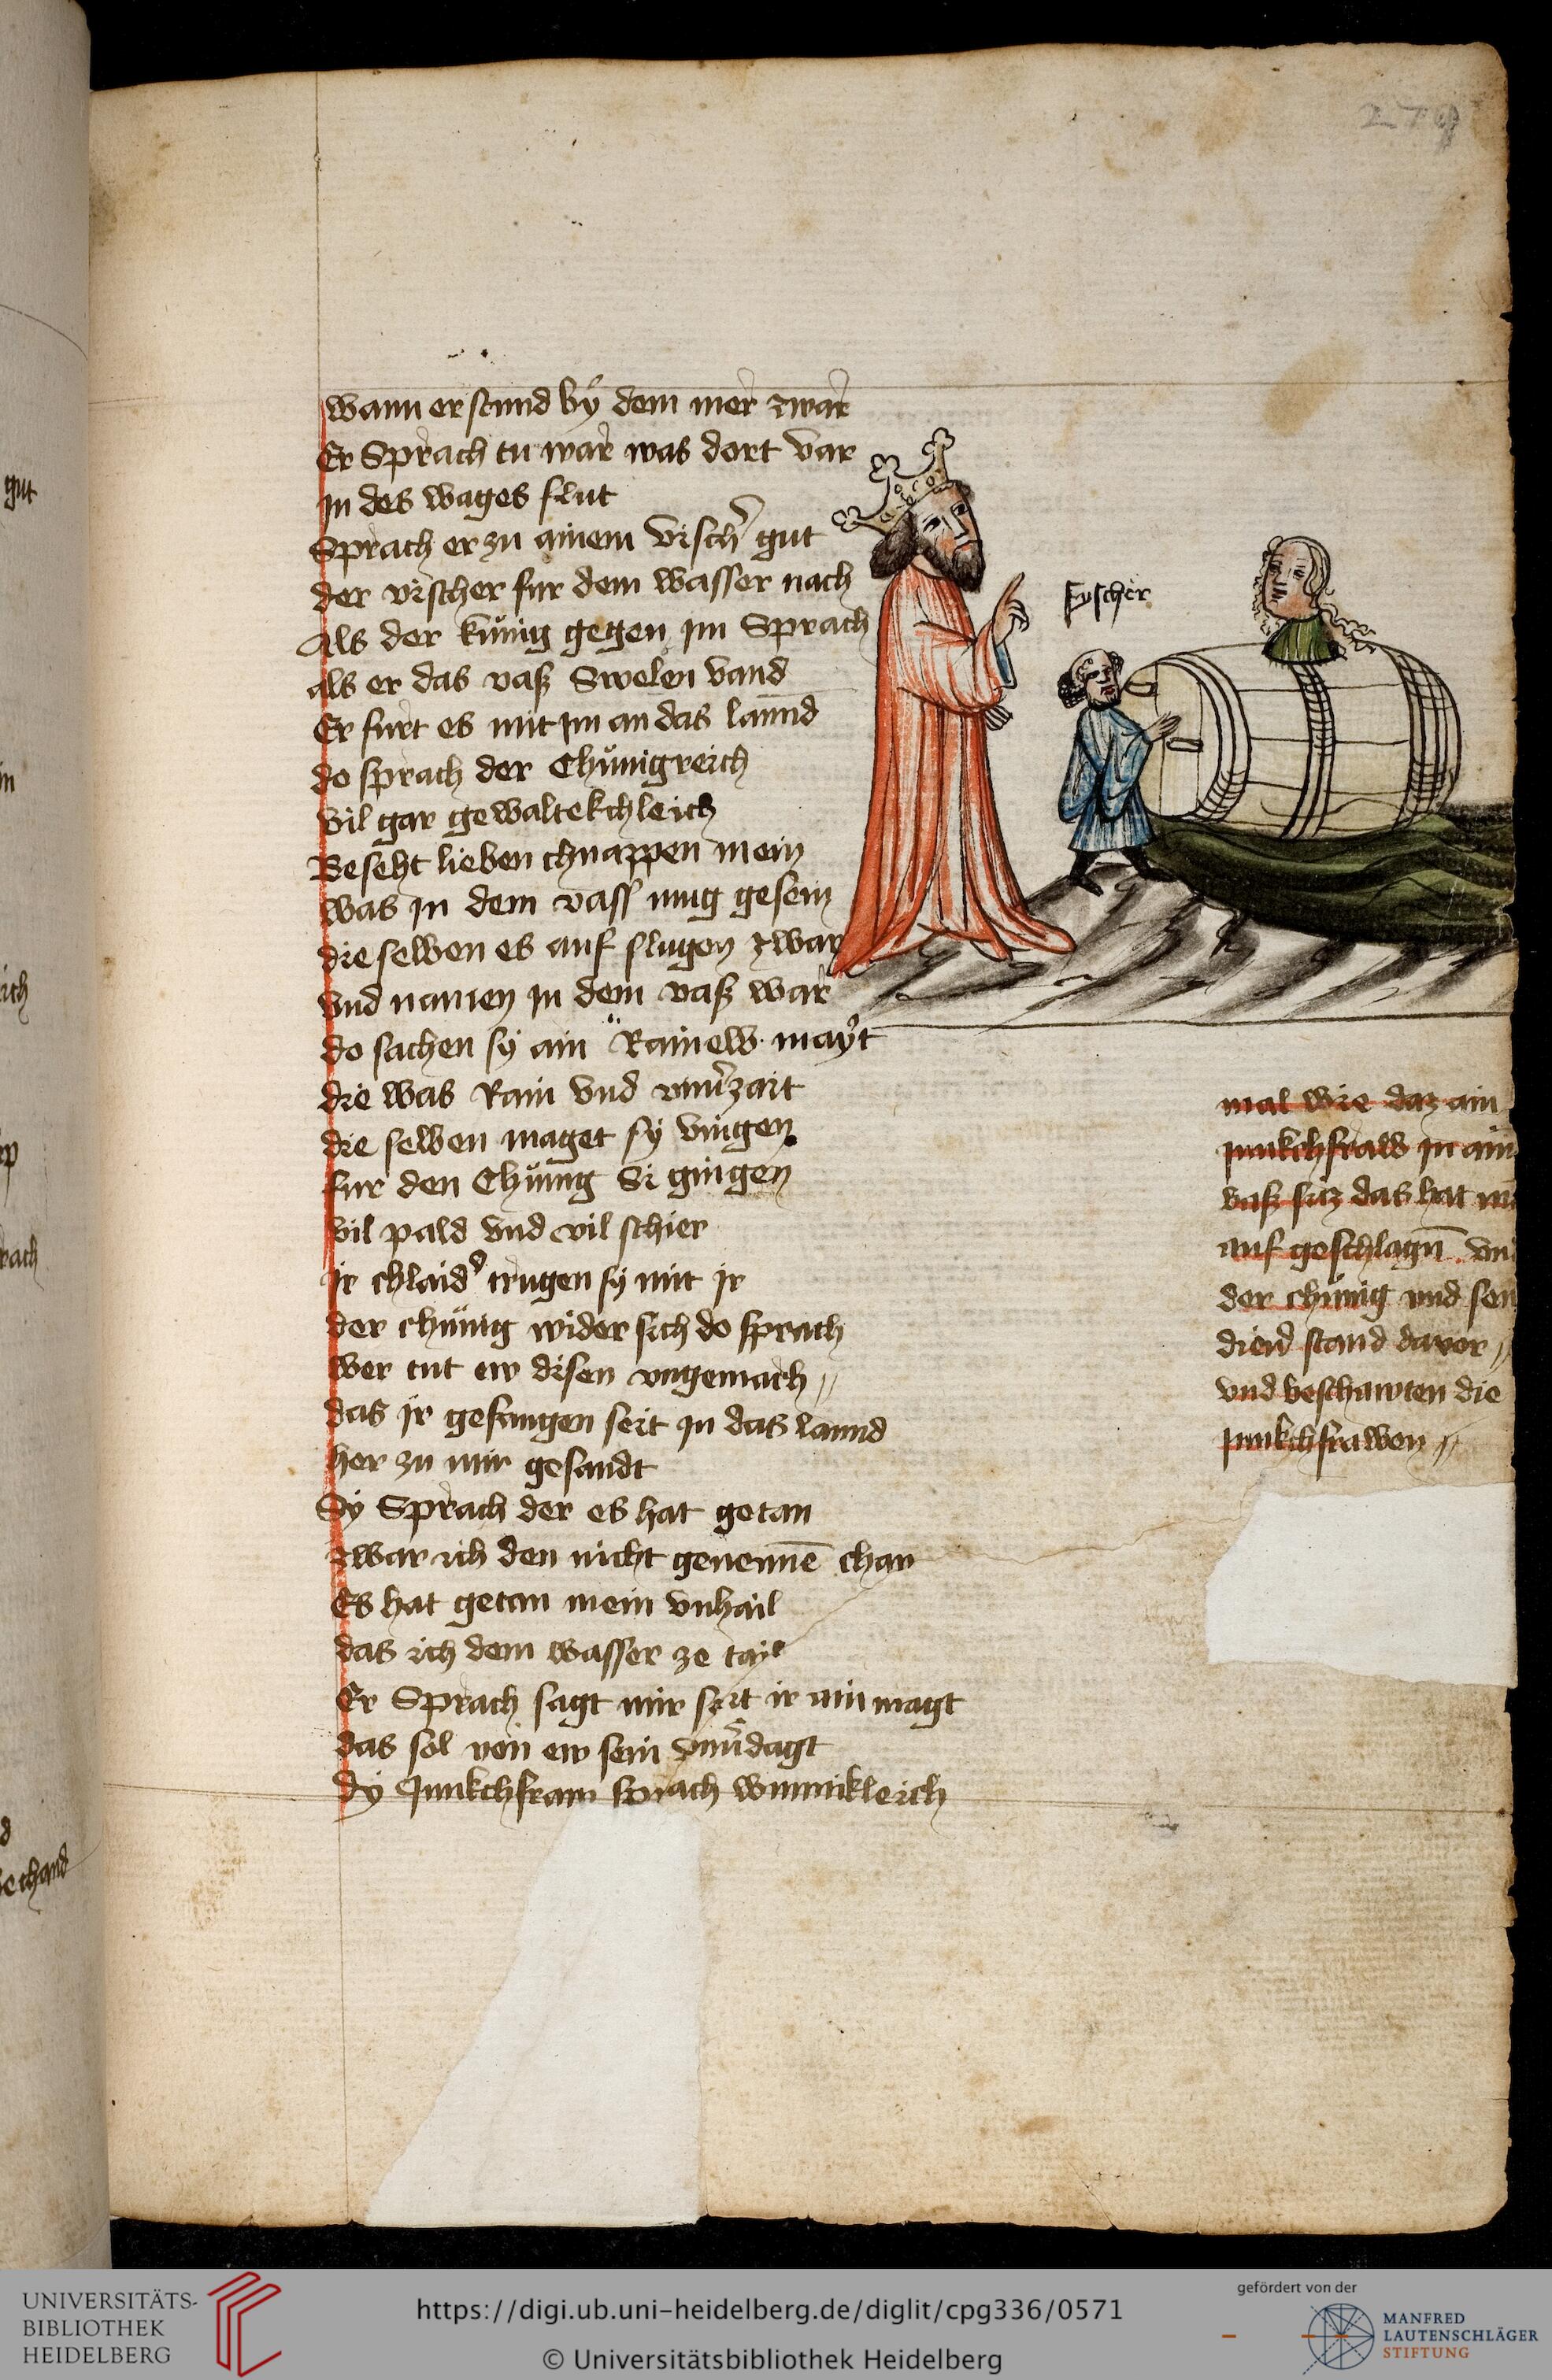 279
wann er stund bÿ dem mer zwar
Er Sprach tu war was dort var
in des wages flut
Sprach er zu ainem visch̾ gut
der vischer fur dem wasser nach
Als der kúnig gegen im Sprach
als er das vasz Swelen vand
Er furt es mit im an das lannd
do sprach der Chúnigreich
vil gar gewaltekchleich
Beseht lieben chnappen mein
was in dem vass mug gesein
die selben es auf slugen zwar
vnd namen in dem vasz war
do sachen sÿ ain Rainew mayt
die was Rain vnd vnu̾zait
die selben maget sÿ viengen
fur den Chúnig Si gingen
vil pald vnd vil schier
ir chlaid̾ trugen sÿ mit ir
der chünig wider sich do sprach
wer tut ew disen vngemach //
das ir gefangen seit in das lannd
her zu mir gesandt
Sÿ Sprach der es hat getan
zwar ich den nicht genennē chan
Es hat getan mein vnhail
das ich dem wasser ze tayl
Er Sprach sagt mir seit ir ain magt
das sol von ew sein vnu̾dagt
dÿ Junkchfraw sprach wunnikleich
Fyscher
mal wie daz ain
junkchfraw in ain
vasz sitz das hat
auf geschlagn̄
der chünig vnd sein
dien̾ stand davor //
vnd beschawten die
junkchfrawen //
gut
in
ich
rach
d
UNIVERSITÄTS-
BIBLIOTHEK
HEIDELBERG
https://digi.ub.uni-heidelberg.de/diglit/cpg336/0571
© Universitätsbibliothek Heidelberg
gefördert von der
MANFRED
LAUTENSCHLÄGER
STIFTUNG